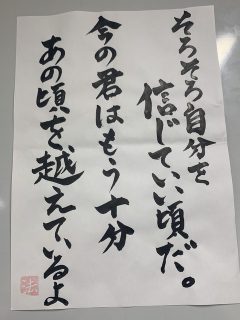 そろそろ自分を
信じていい頃だ。
今の君はもう十分
あの頃を、越えているよ